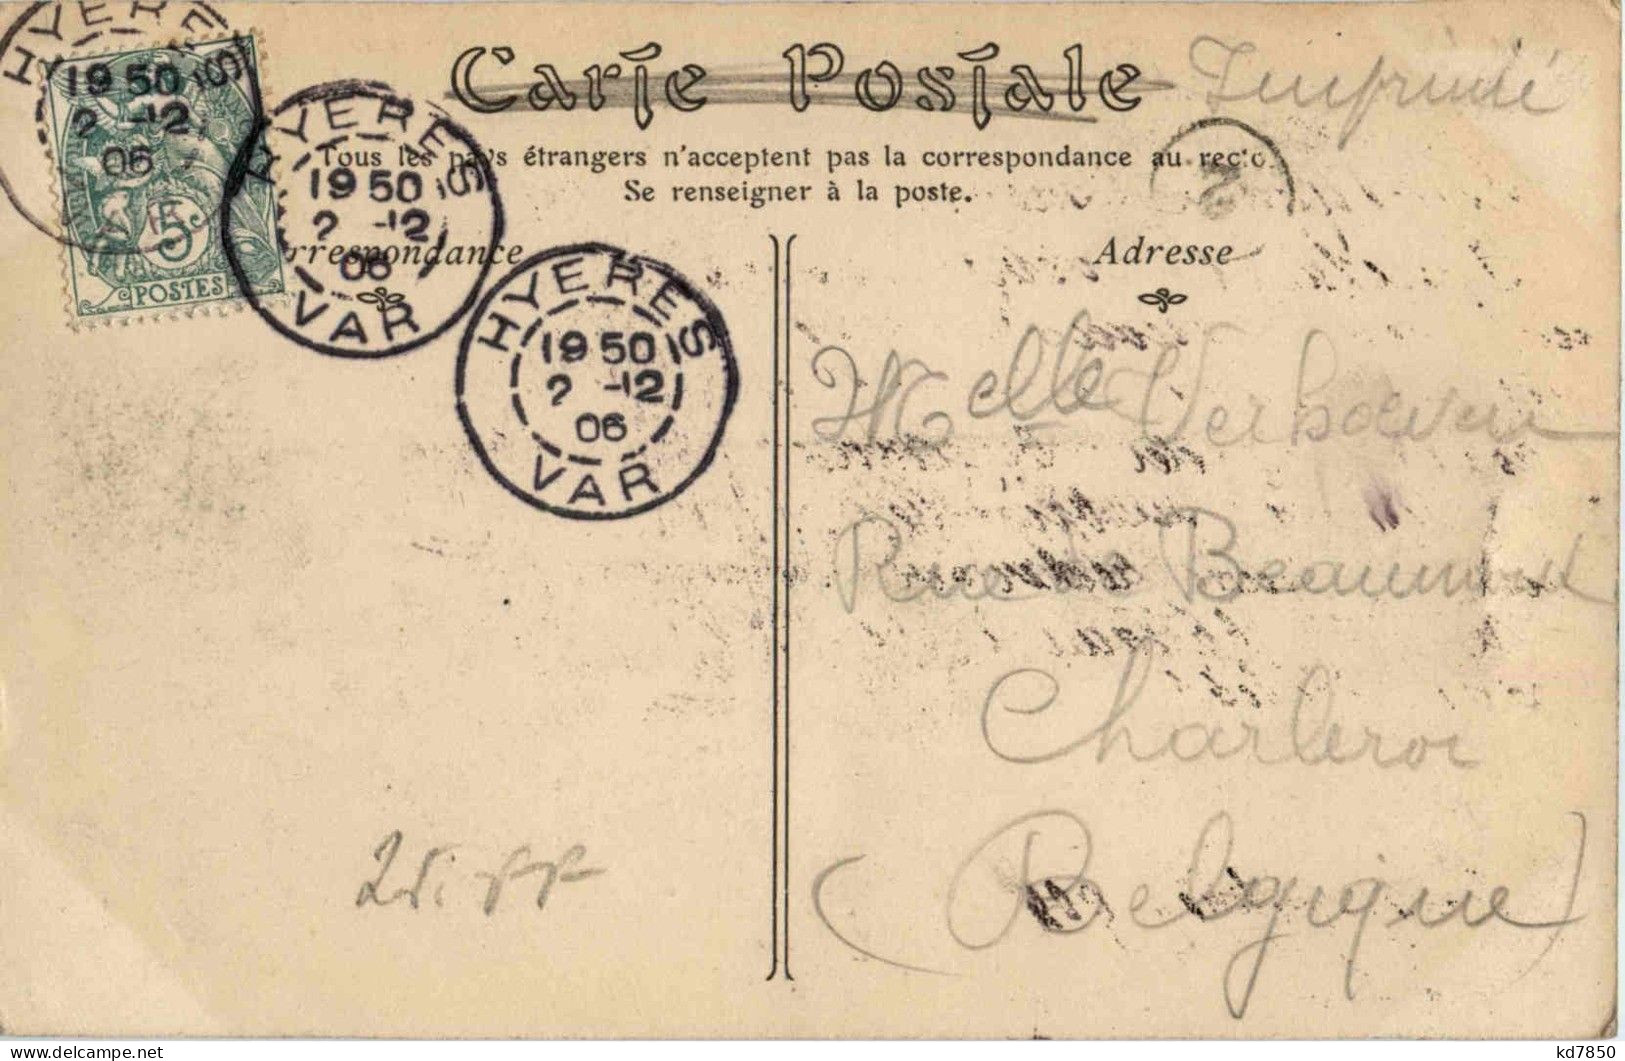 Carte Postale
Imprimé
Tous les pays étrangers n'acceptent pas la correspondance au recto.
Se renseigner à la poste.
Correspondance
Adresse
HYERES
19 50
2 -12
06
VAR
HYERES
19 50
2 -12
06
VAR
HYERES
19 50
2 -12
06
VAR
5c
POSTES
2
Melle Verhoeven
Rue de Beaumont
Charleroi
(Belgique)
kd7850